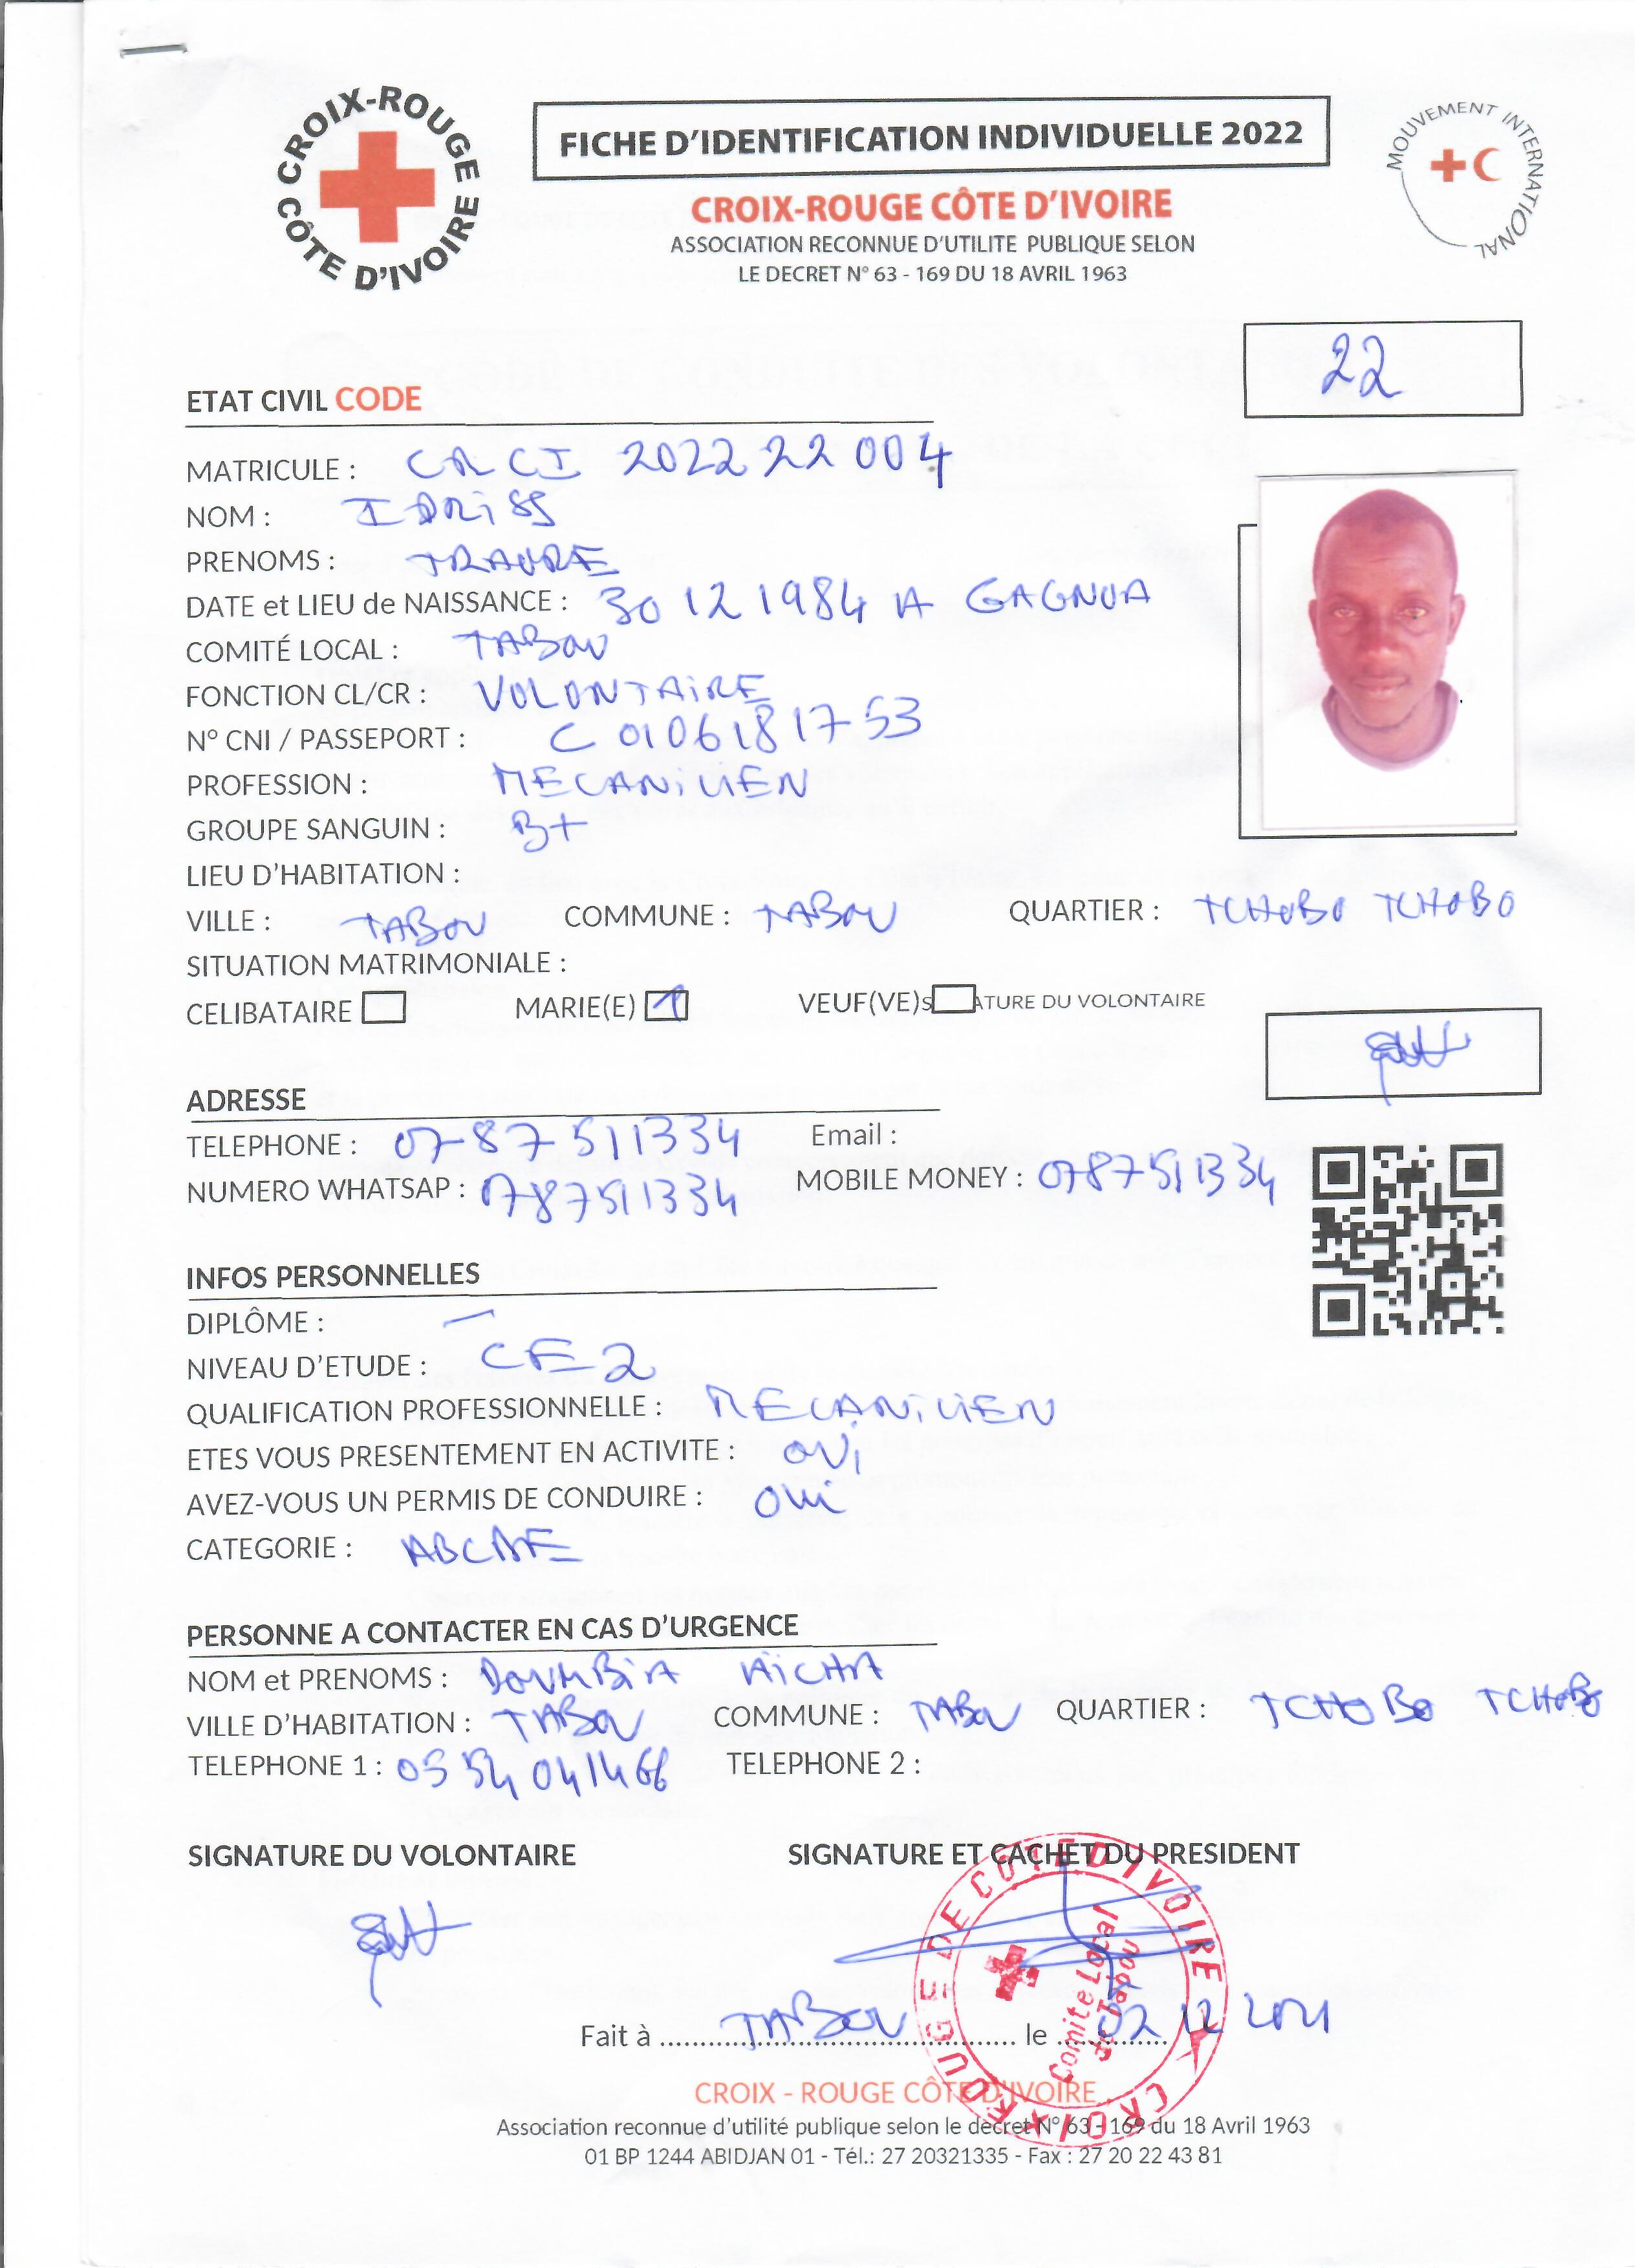 CROIX-ROUGE CÔTE D'IVOIRE
FICHE D'IDENTIFICATION INDIVIDUELLE 2022
MOUVEMENT INTERNATIONAL
CROIX-ROUGE CÔTE D'IVOIRE
ASSOCIATION RECONNUE D'UTILITE PUBLIQUE SELON
LE DECRET N° 63 - 169 DU 18 AVRIL 1963
22
ETAT CIVIL CODE
MATRICULE : CRCI 2022 22 004
NOM : IDRiSS
PRENOMS : TRAORE
DATE et LIEU de NAISSANCE : 30 12 1984 A GAGNOA
COMITÉ LOCAL : TABOU
FONCTION CL/CR : VOLONTAiRE
N° CNI / PASSEPORT : C 0106181753
PROFESSION : MECANiCiEN
GROUPE SANGUIN : B+
LIEU D'HABITATION :
VILLE : TABOU COMMUNE : TABOU QUARTIER : TCHOBO TCHOBO
SITUATION MATRIMONIALE :
CELIBATAIRE MARIE(E) VEUF(VE) SATURE DU VOLONTAIRE
ADRESSE
TELEPHONE : 07 87 511334 Email :
NUMERO WHATSAP : 0787511334 MOBILE MONEY : 0787511334
INFOS PERSONNELLES
DIPLÔME : —
NIVEAU D'ETUDE : CE2
QUALIFICATION PROFESSIONNELLE : MECANiCiEN
ETES VOUS PRESENTEMENT EN ACTIVITE : OUi
AVEZ-VOUS UN PERMIS DE CONDUIRE : Oui
CATEGORIE : ABCDE
PERSONNE A CONTACTER EN CAS D'URGENCE
NOM et PRENOMS : DOUMBiA AiCHA
VILLE D'HABITATION : TABOU COMMUNE : TABOU QUARTIER : TCHOBO TCHOBO
TELEPHONE 1 : 05 54 041466 TELEPHONE 2 :
SIGNATURE DU VOLONTAIRE SIGNATURE ET CACHET DU PRESIDENT
CROIX ROUGE DE COTE D'IVOIRE
Comité Local
de Tabou
Fait à TABOU le 02 12 2021
CROIX - ROUGE CÔTE D'IVOIRE
Association reconnue d'utilité publique selon le décret N° 63 - 169 du 18 Avril 1963
01 BP 1244 ABIDJAN 01 - Tél.: 27 20321335 - Fax : 27 20 22 43 81